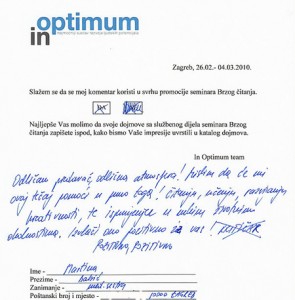 in optimum
Zagreb, 26.02.- 04.03.2010.
Slažem se da se moj komentar koristi u svrhu promocije seminara Brzog čitanja.
DA NE
Najljepše Vas molimo da svoje dojmove sa službenog dijela seminara Brzog
čitanja zapišete ispod, kako bismo Vaše impresije uvrstili u katalog dojmova.
In Optimum team
Odličan predavač, odlična atmosfera! Mislim da će mi
ovaj tečaj pomoći u puno toga! čitanju, učenju, razvijanju
kreativnosti, te
za vas!
Pozitivna
Ime : Martina
Prezime : Babić
Zanimanje :
Poštanski broj i mjesto - 10000 ZAGREB